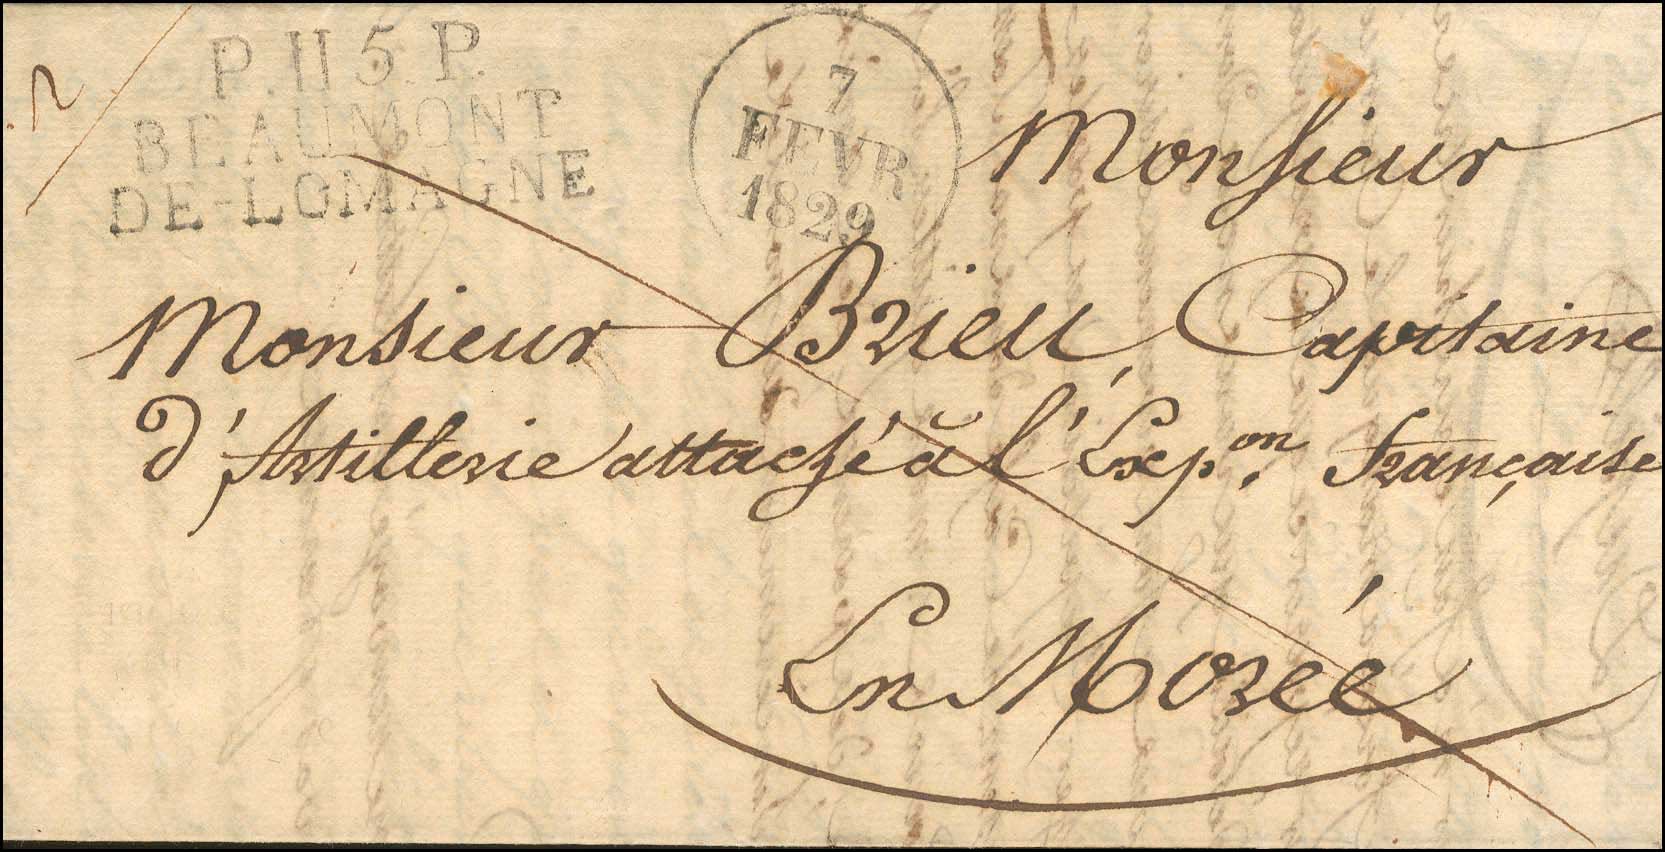 P.115.P.
BEAUMONT
DE-LOMAGNE
7
FEVR
1829
Monsieur
Monsieur Brïeu, Capitaine
d'Artillerie attaché à l'Exp.on française
En Morée